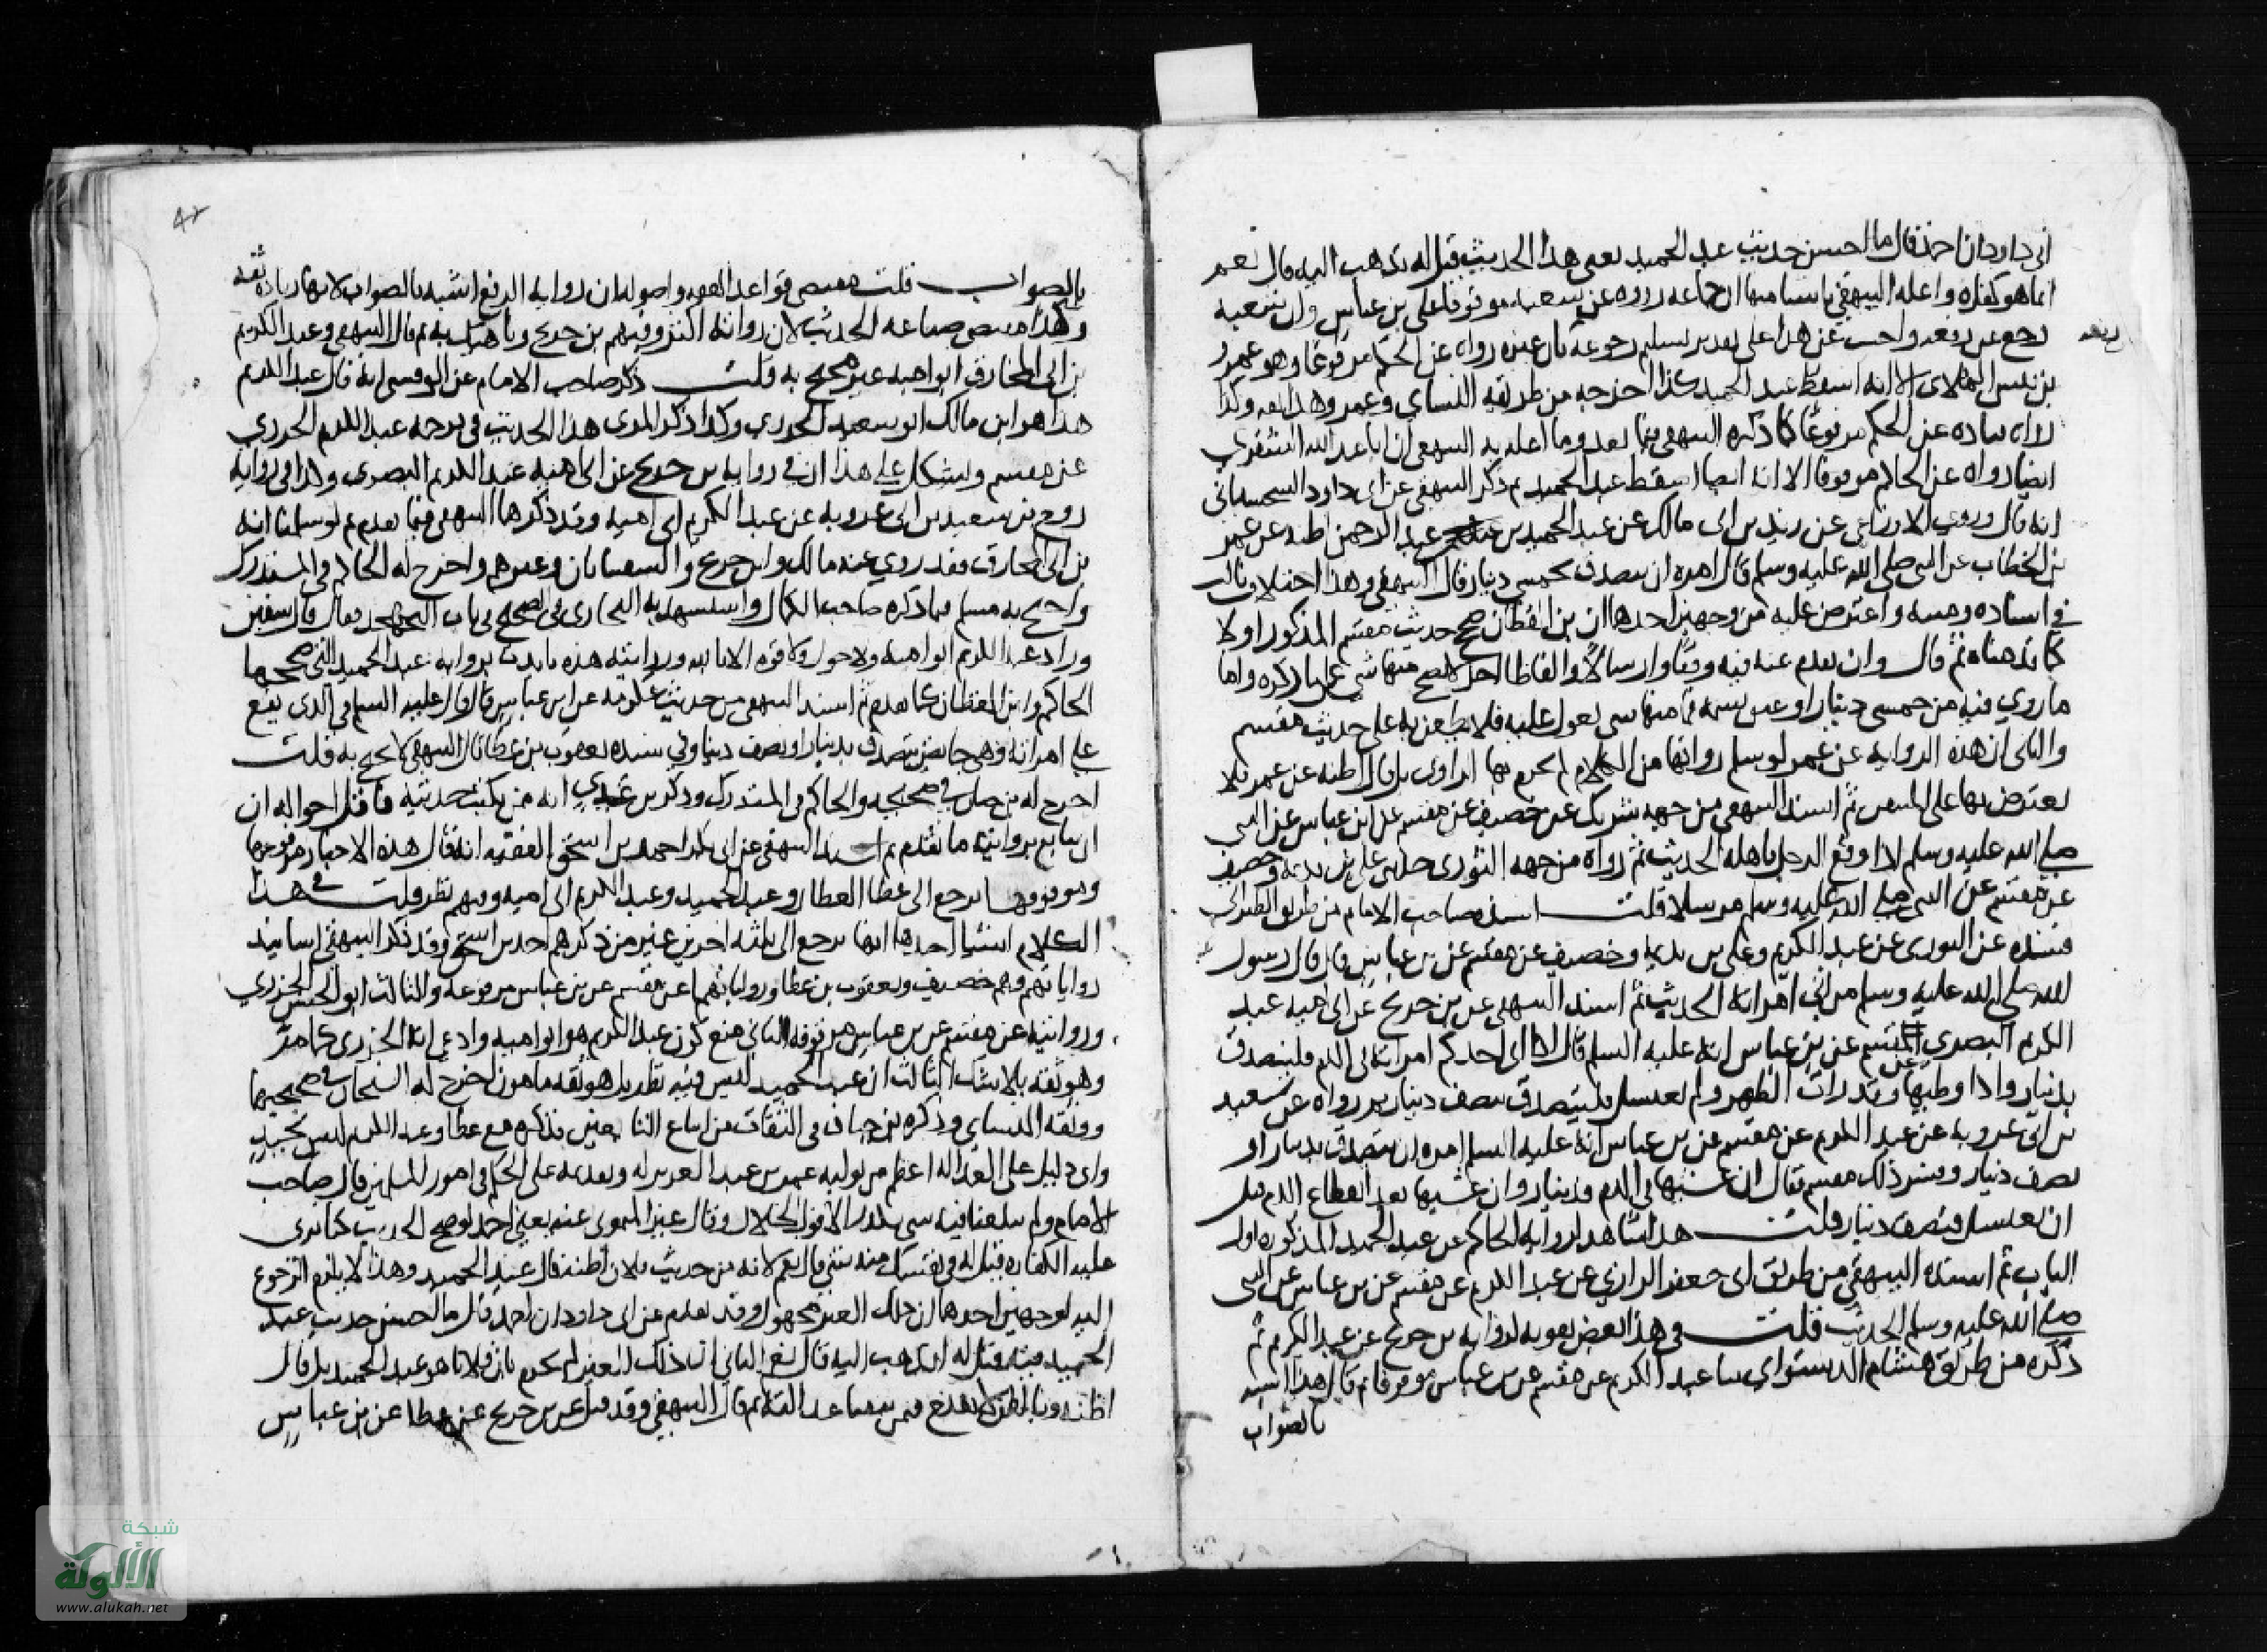 أبي داود ان احمد قال ما احسن حديث عبد الحميد يعني هذا الحديث قيل له تذهب اليه قال نعم
انما هو كفارة واعله البيهقي باشيا منها ان جماعة رووه عن شعبة موقوفا على بن عباس وان شعبة
رجع عن رفعه واجيب عن هذا على تقدير تسليم رجوعه بان غيره رواه عن الحكم مرفوعا وهو عمرو
رفعه
بن قيس الملائي الا انه اسقط عبد الحميد كذا اخرجه من طريقه النسائي وعمرو هذا ثقة وكذا
رواه قتادة عن الحكم مرفوعا كما ذكره البيهقي فيما بعد وما اعله به البيهقي ان ابا عبد الله الشقري
ايضا رواه عن الحكم موقوفا الا انه ايضا اسقط عبد الحميد ثم ذكر البيهقي عن ابي داود السجستاني
انه قال وروى الاوزاعي عن يزيد بن ابي مالك عن عبد الحميد بن عبد الرحمن اظنه عن عمر
بن الخطاب عن النبي صلى الله عليه وسلم قال امره ان يتصدق بخمسي دينار قال البيهقي وهذا اختلاف ثالث
في اسناده ومتنه واعترض عليه من وجهين احدهما ان بن القطان صحح حديث مقسم المذكور اولا
كما قدمناه ثم قال وان تقدم عنه فيه وقفا وارسالا والفاظا اخر لا يصح منها شي على ما ذكره واما
ما روي فيه من خمسي دينار او عتق نسمة فما منها شي يعول عليه فلا يطعن به على حديث مقسم
والثاني ان هذه الرواية عن عمر لو سلم رواتها من الكلام لم يجزم بها الراوي بل قال اظنه عن عمر فلا
يعترض بها على ثم اسند البيهقي من جهة شريك عن خصيف عن مقسم عن ابن عباس عن النبي
صلى الله عليه وسلم اذا وقع الرجل باهله الحديث ثم رواه من جهة الثوري حدثني علي بن بذيمة وخصيف
عن مقسم عن النبي صلى الله عليه وسلم مرسلا قلت اسنده صاحب الامام من طريق الطبراني
فسنده عن الثوري عن عبد الكريم وعلي بن بذيمة وخصيف عن مقسم عن بن عباس قال قال رسول
الله صلى الله عليه وسلم من اتى امراته الحديث ثم اسند البيهقي عن بن جريج عن ابي امية عبد
الكريم البصري عن مقسم عن بن عباس انه عليه السلم قال اذا اتى احدكم امراته في الدم فليتصدق
بدينار واذا وطيها وقد رات الطهر ولم تغتسل فليتصدق بنصف دينار ثم رواه عن سعيد
بن ابي عروبة عن عبد الكريم عن مقسم عن بن عباس انه عليه السلم امره ان يتصدق بدينار او
نصف دينار وفسر ذلك مقسم فقال ان غشيها في الدم فدينار وان غشيها بعد انقطاع الدم قبل
ان تغتسل فنصف دينار قلت هذا شاهد لرواية الحاكم عن عبد الحميد المذكورة اول
الباب ثم اسنده البيهقي من طريق ابي جعفر الرازي عن عبد الكريم عن مقسم عن بن عباس عن النبي
صلى الله عليه وسلم الحديث قلت في هذا بعض تقوية لرواية بن جريج عن عبد الكريم ثم
ذكره من طريق هشام الدستوائي ثنا عبد الكريم عن مقسم عن بن عباس موقوفا ثم قال هذا اشبه
بالصواب
٤٢
بالصواب قلت مقتضى قواعد الفقه واصوله ان رواية الرفع اشبه بالصواب لانها زيادة ثقة
وكذا مقتضى صناعة الحديث لان رواته اكثر وفيهم بن جريج وناهيك به ثم قال البيهقي وعبد الكريم
بن ابي المخارق ابو امية غير محتج به قلت ذكر صاحب الامام عن انه قال عبد الكريم
هذا هو ابن مالك ابو سعيد الجزري وكذا ذكر المزي هذا الحديث في ترجمة عبد الكريم الجزري
عن مقسم ويشكل على هذا ان في رواية بن جريج عن ابي امية عبد الكريم البصري وكذا في رواية
روح بن سعيد بن ابي عروبة عن عبد الكريم ابي امية وقد ذكرها البيهقي فيما تقدم ثم لو سلمنا انه
بن ابي المخارق فقد روي عنه مالك وابن جريج والسفيانان وغيرهم واخرج له الحاكم في المستدرك
واحتج به مسلم فيما ذكره صاحب الكمال واستشهد به البخاري في الصحيح في باب التهجد فقال قال سفين
وزاد عبد الكريم ابو امية ولا حول ولا قوة الا بالله وروايته هذه تايدت برواية عبد الحميد التي صححها
الحاكم وابن القطان كما تقدم ثم اسند البيهقي من حديث عكرمة عن ابن عباس قال قال عليه السلم في الذي يقع
على امراته وهي حايض يتصدق بدينار او نصف دينار وفي سنده يعقوب بن عطا قال البيهقي لا يحتج به قلت
اخرج له بن حبان في صحيحه والحاكم في المستدرك وذكر بن عدي انه ممن يكتب حديثه فاقل احواله ان
ان يتابع بروايته ما تقدم ثم اسند البيهقي عن ابي بكر احمد بن اسحق الفقيه انه قال هذه الاخبار مرفوعها
وموقوفها يرجع الى عطا العطار وعبد الحميد وعبد الكريم ابي امية وفيهم نظر قلت في هذا
الكلام اشيا احدها انها ترجع الى ثلثة اخرين غير من ذكرهم احمد بن اسحق وقد ذكر البيهقي اسانيد
رواياتهم وهم خصيف ويعقوب بن عطا ورواياتهما عن مقسم عن بن عباس مرفوعة والثالث ابو الحسن الجزري
وروايته عن مقسم عن بن عباس موقوفة الثاني منع كون عبد الكريم هو ابو امية وادعى انه الجزري كما مر
وهو ثقة بلا شك الثالث ان عبد الحميد ليس فيه نظر بل هو ثقة مامون اخرج له الشيخان في صحيحيهما
ووثقه النسائي وذكره بن حبان في الثقات من اتباع التابعين فذكره مع عطا وعبد الكريم ليس بجيد
واي دليل على العدالة اعظم من تولية عمر بن عبد العزيز له وتقديمه على الحكم في امور المسلمين قال صاحب
الامام ولم يبلغنا فيه شي الا قول الخلال وقال غير الميموني عنه يعني احمد لو صح الحديث كنا نرى
عليه الكفارة قيل له في نفسك منه شي قال نعم لانه من حديث فلان اظنه قال عبد الحميد وهذا لا يلزم الرجوع
اليه لوجهين احدهما ان ذلك الغير مجهول وقد تقدم عن ابي داود ان احمد قال ما احسن حديث عبد
الحميد فيه فقيل له اتذهب اليه قال نعم الثاني ان ذلك الغير لم يجزم بان فلانا هو عبد الحميد بل قال
اظنه وبالظن لا يقدح فيمن تيقنا عدالته ثم قال البيهقي وقد قيل عن بن جريج عن عطا عن بن عباس
شبكة
الألوكة
www.alukah.net